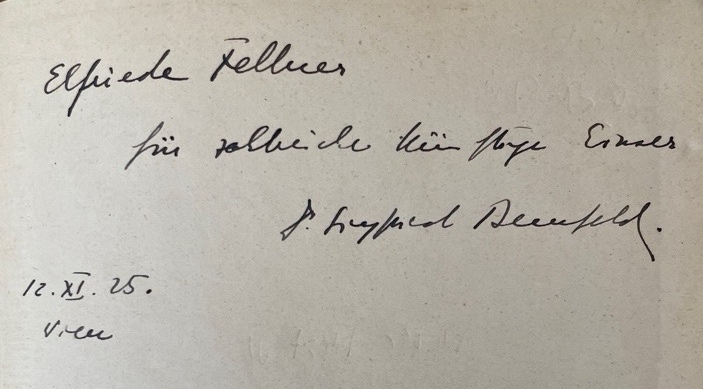 Elfriede Fellner
für zahlreiche künftige Einser
D. Siegfried Bernfeld.
12. XI. 25.
Wien